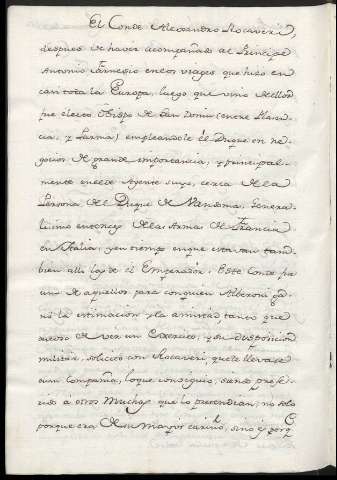 El Conde Alessandro Rocaveri,
despues de haver acompañado al Principe
Antonio Farnesio en los viages que hizo en
casi toda la Europa, luego que vino de ellos
fue electo Obispo de San Donin (entre Plasen-
cia, y Parma) empleandole el Duque en ne-
gocios de grande importancia, y principal-
mente en el de Agente suyo, cerca de la
Persona del Duque de Vandoma, General-
lisimo entonces de las Armas de Francia
en Italia, y en tiempo en que estavan tam-
bien alli las de el Emperador. Este Conde fue
uno de aquellos para con quien Alberoni ga-
nó la estimacion y la amistad, tanto que
deseoso de ver un Exercito, y su disposicion
militar, solicitó con Rocaveri, que le llevase
en su compañia, lo que consiguió, siendo prefe-
rido à otros muchos que lo pretendian, no solo
porque era de su mayor cariño, sino es porq